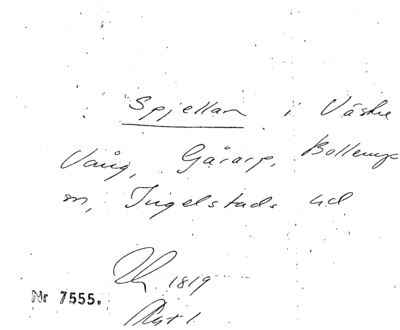 Spjellan i Västra
Vång, Gårarp, Bollerup
sn, Ingelstads hd
1819
Nr 7555.